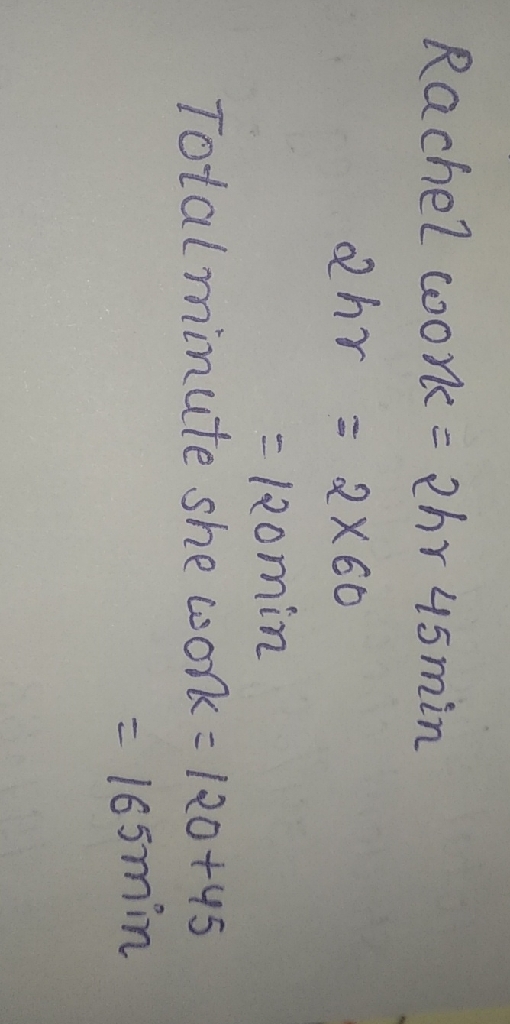 Rachel work = 2hr 45min
2hr = 2×60
= 120min
Total minute she work = 120+45
= 165min